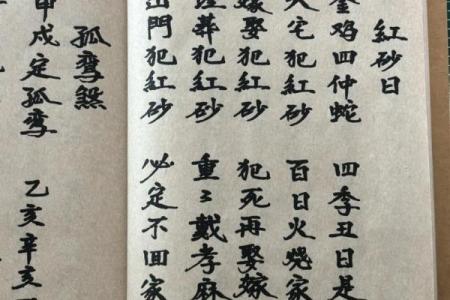 紅砂日
金鸡四仲蛇 四季丑日是
入宅犯紅砂 百日火燒家
嫁娶犯紅砂 犯死再娶嫁
埋葬犯紅砂 重〻戴孝麻
出門犯紅砂 必定不回家
孤鸞煞
戌定孤鸞 乙亥辛亥